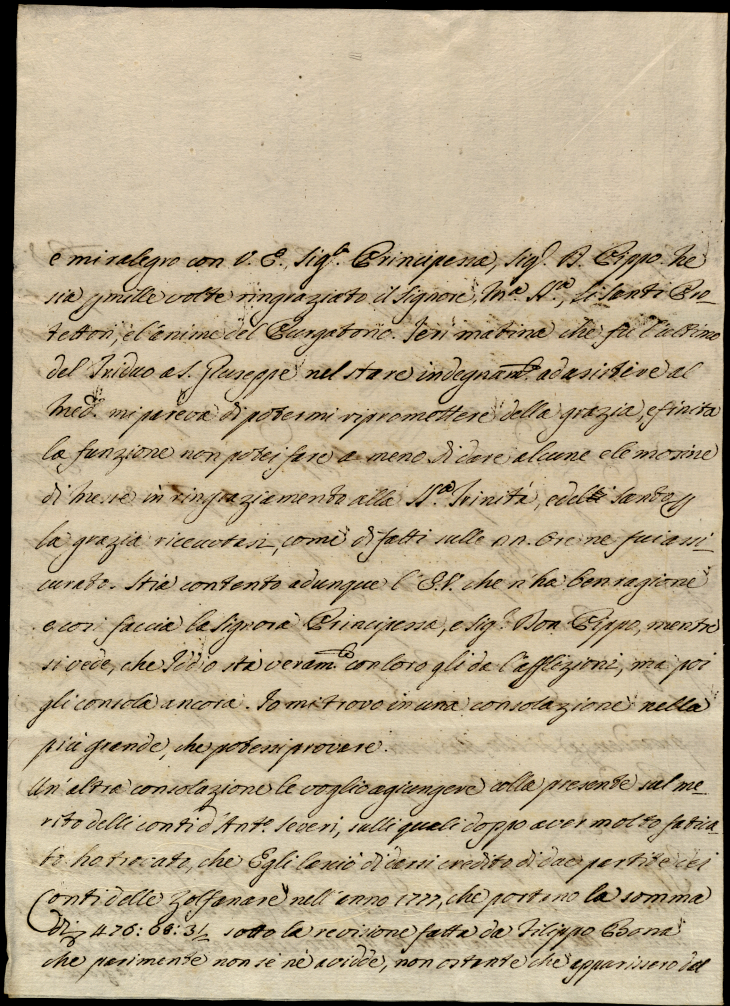 e mi ralegro con V. E., Sig.ra Principessa, Sig.r D. Pippo. Ne
sia p mille volte ringraziato il Signore, M.a S.ma, li Santi Pro-
tettori, e l'anime del Purgatorio. Ieri matina che fù l'ultimo
del Triduo a S. Giuseppe nel stare indegnam.te ad asistere al
Med.o mi pareva di potermi ripromettere della grazia, e finita
la funzione non potei fare a meno di dare alcune elemosine
di Messe in ringraziamento alla S.ma Trinità, e del Santo p
la grazia ricevutasi, come difatti sulle Ore ne fui assi-
curato. Stia contento adunque l'E.V. che n ha ben ragione
e così faccia la Signora Principessa, e Sig.r Don Pippo, mentre
si vede, che Iddio stà veram.te con loro gli da l'afflizioni, ma poi
gli consola ancora. Io mi trovo in una consolazione nella
più grande, che potessi provare.
Un'altra consolazione le voglio agiungere colla presente sul me-
rito delli conti d'Ant.o Severi, sulli quali doppo aver molto fatica-
to ho trovato, che Egli lasciò di darsi credito di due partite nei
Conti delle Zolfanare nell'anno 1777, che portano la somma
di 476: 66: 3½ sotto la revisione fatta da Filippo Bona
che parimente non se nè avidde, non ostante che apparissero dal